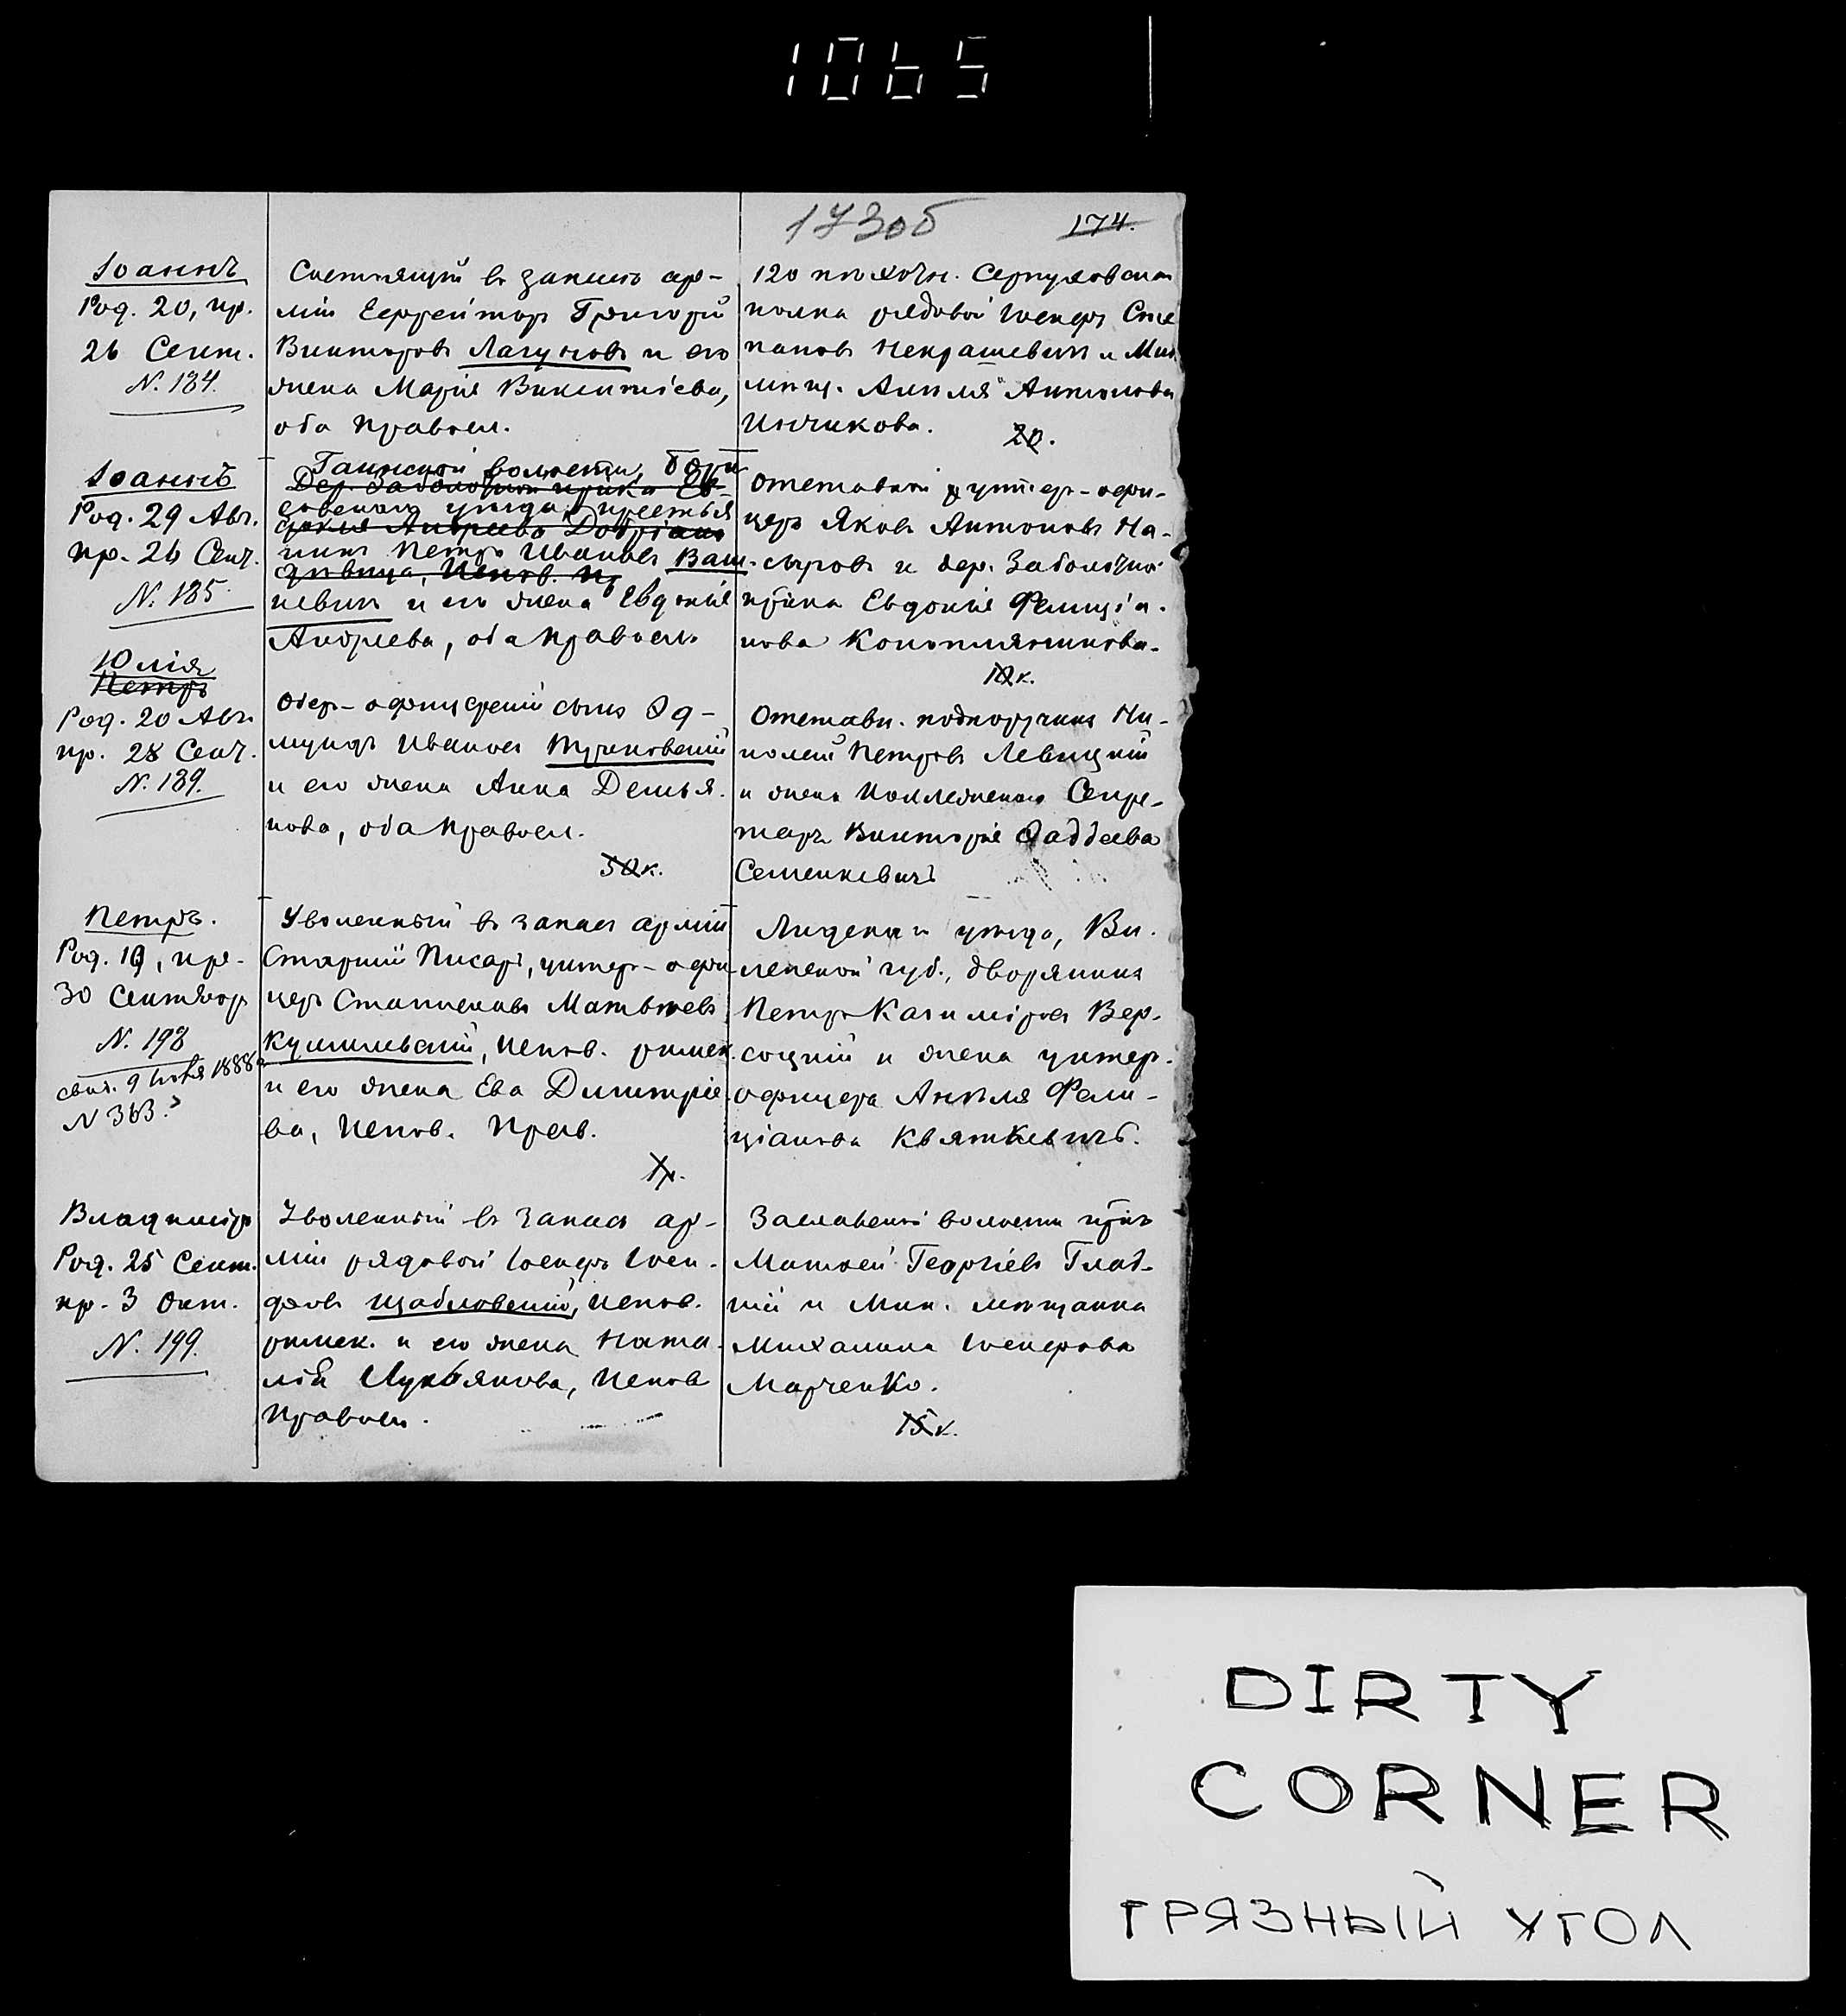 1065
173об
174.
Іоаннъ
Род. 20, кр.
26 Сент.
N. 184.
Состоящій въ запасѣ ар-
міи Ефрейторъ Григорій
Викторовъ Лагуновъ и его
жена Марія Викентіева,
оба правосл.
120 пѣхотн. Серпуховскаго
полка рядовой Іосифъ Сте
пановъ Некрашевичъ и Мин
мѣщ. Анѣля Антонова
Инчикова.
20.
Іоаннъ
Род. 29 Авг.
кр. 26 Сент.
N. 185.
Гаинской волости, Бори
Дер. Заболотья кр͠ка Ев-
совскаго уѣзда, крестья
докія Андреева
нинъ Петръ Ивановъ Ваш-
дѣвица, Испов. Пр
кевичъ и его жена Евдокія
Андреева, оба правосл.
Отставной унтеръ-офи-
церъ Яковъ Антоновъ На-
сыровъ и дер. Заболотья
кр͠ка Евдокія Фелиціа-
нова Коноплянникова.
10к.
Юлія
Петръ
Род. 20 Авг.
кр. 28 Сент.
N. 189.
Оберъ-офицерскій сынъ Эд-
мундъ Ивановъ
и его жена Анна Демья-
нова, оба правосл.
50к.
Отставн. подпоручикъ Ни-
колай Петровъ Левицкій
и жена Коллежскаго Секре-
таря Викторія Фаддеева
Семенкевичъ
Петръ.
Род. 19, кре-
30 Сентябр
N. 198
свид. 9 Ноября 1888
N 363.
Уволенный въ запасъ арміи
Старшій Писарь, унтеръ-офи-
церъ Станиславъ Матвѣевъ
, Испов. римск.
и его жена Ева Димитріе-
ва, Испов. Прав.
1р.
Лидскаго уѣзда, Ви-
ленской губ., дворянинъ
Петръ Казиміровъ Вер-
соцкій и жена унтеръ-
офицера Анѣля Фели-
ціанова Квяткевичъ.
Владиміръ
Род. 25 Сент.
кр. 3 Окт.
N. 199.
Уволенный въ запасъ ар-
міи рядовой Іосифъ Іоси-
фовъ Щабловскій, Испов.
римск. и его жена Ната-
лія Лукьянова, Испов
Правосл.
Заславской волости кр͠нъ
Матвей Георгіевъ Глад-
кій и Мин. мѣщанка
Михалина Іосифова
Марченко.
15к.
DIRTY
CORNER
ГРЯЗНЫЙ УГОЛ